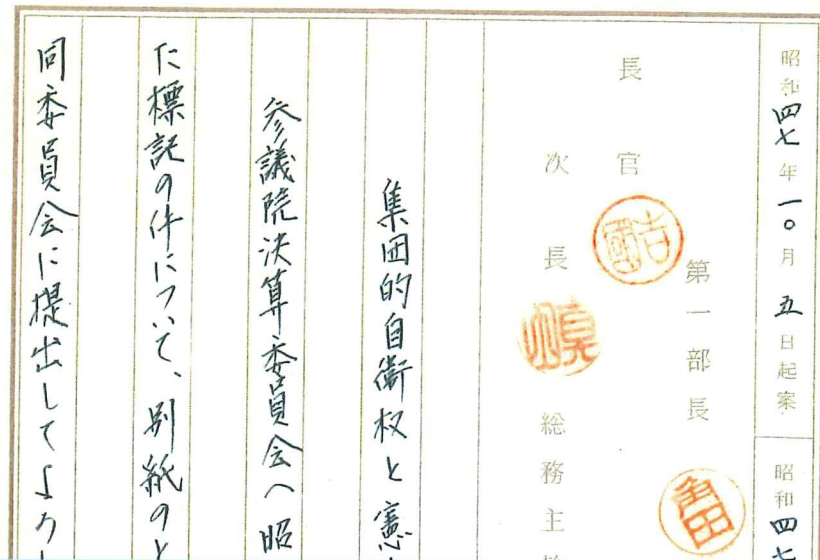 昭和四七年一〇月五日起案
昭和四七
第一部長
角田
長官
吉國
次長
眞田
総務主
集団的自衛权と憲
参議院決算委員会へ昭
た標記の件について、別紙のと
同委員会に提出してよろ